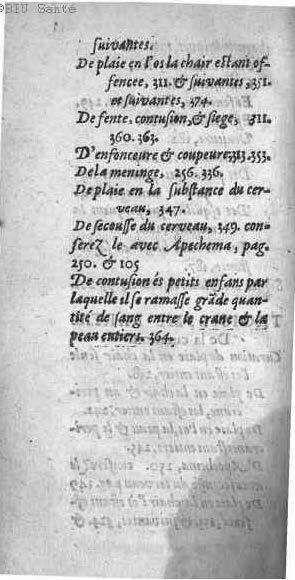 ©BIU Santé
suivantes.
De plaie en l'os la chair estant of-
fencee, 311. & suivantes, 351.
et suivantes, 374.
De fente, contusion, & siege, 311.
360. 363.
D'enfonceure & coupeure, 313. 353.
De la meninge, 256. 336.
De plaie en la substance du cer-
veau, 347.
De secousse du cerveau, 349. con-
ferez le avec Apechema, pag.
250. & 105
De contusion és petits enfans par
laquelle il se ramasse grãde quan-
tité de sang entre le crane & la
peau entiere. 364.